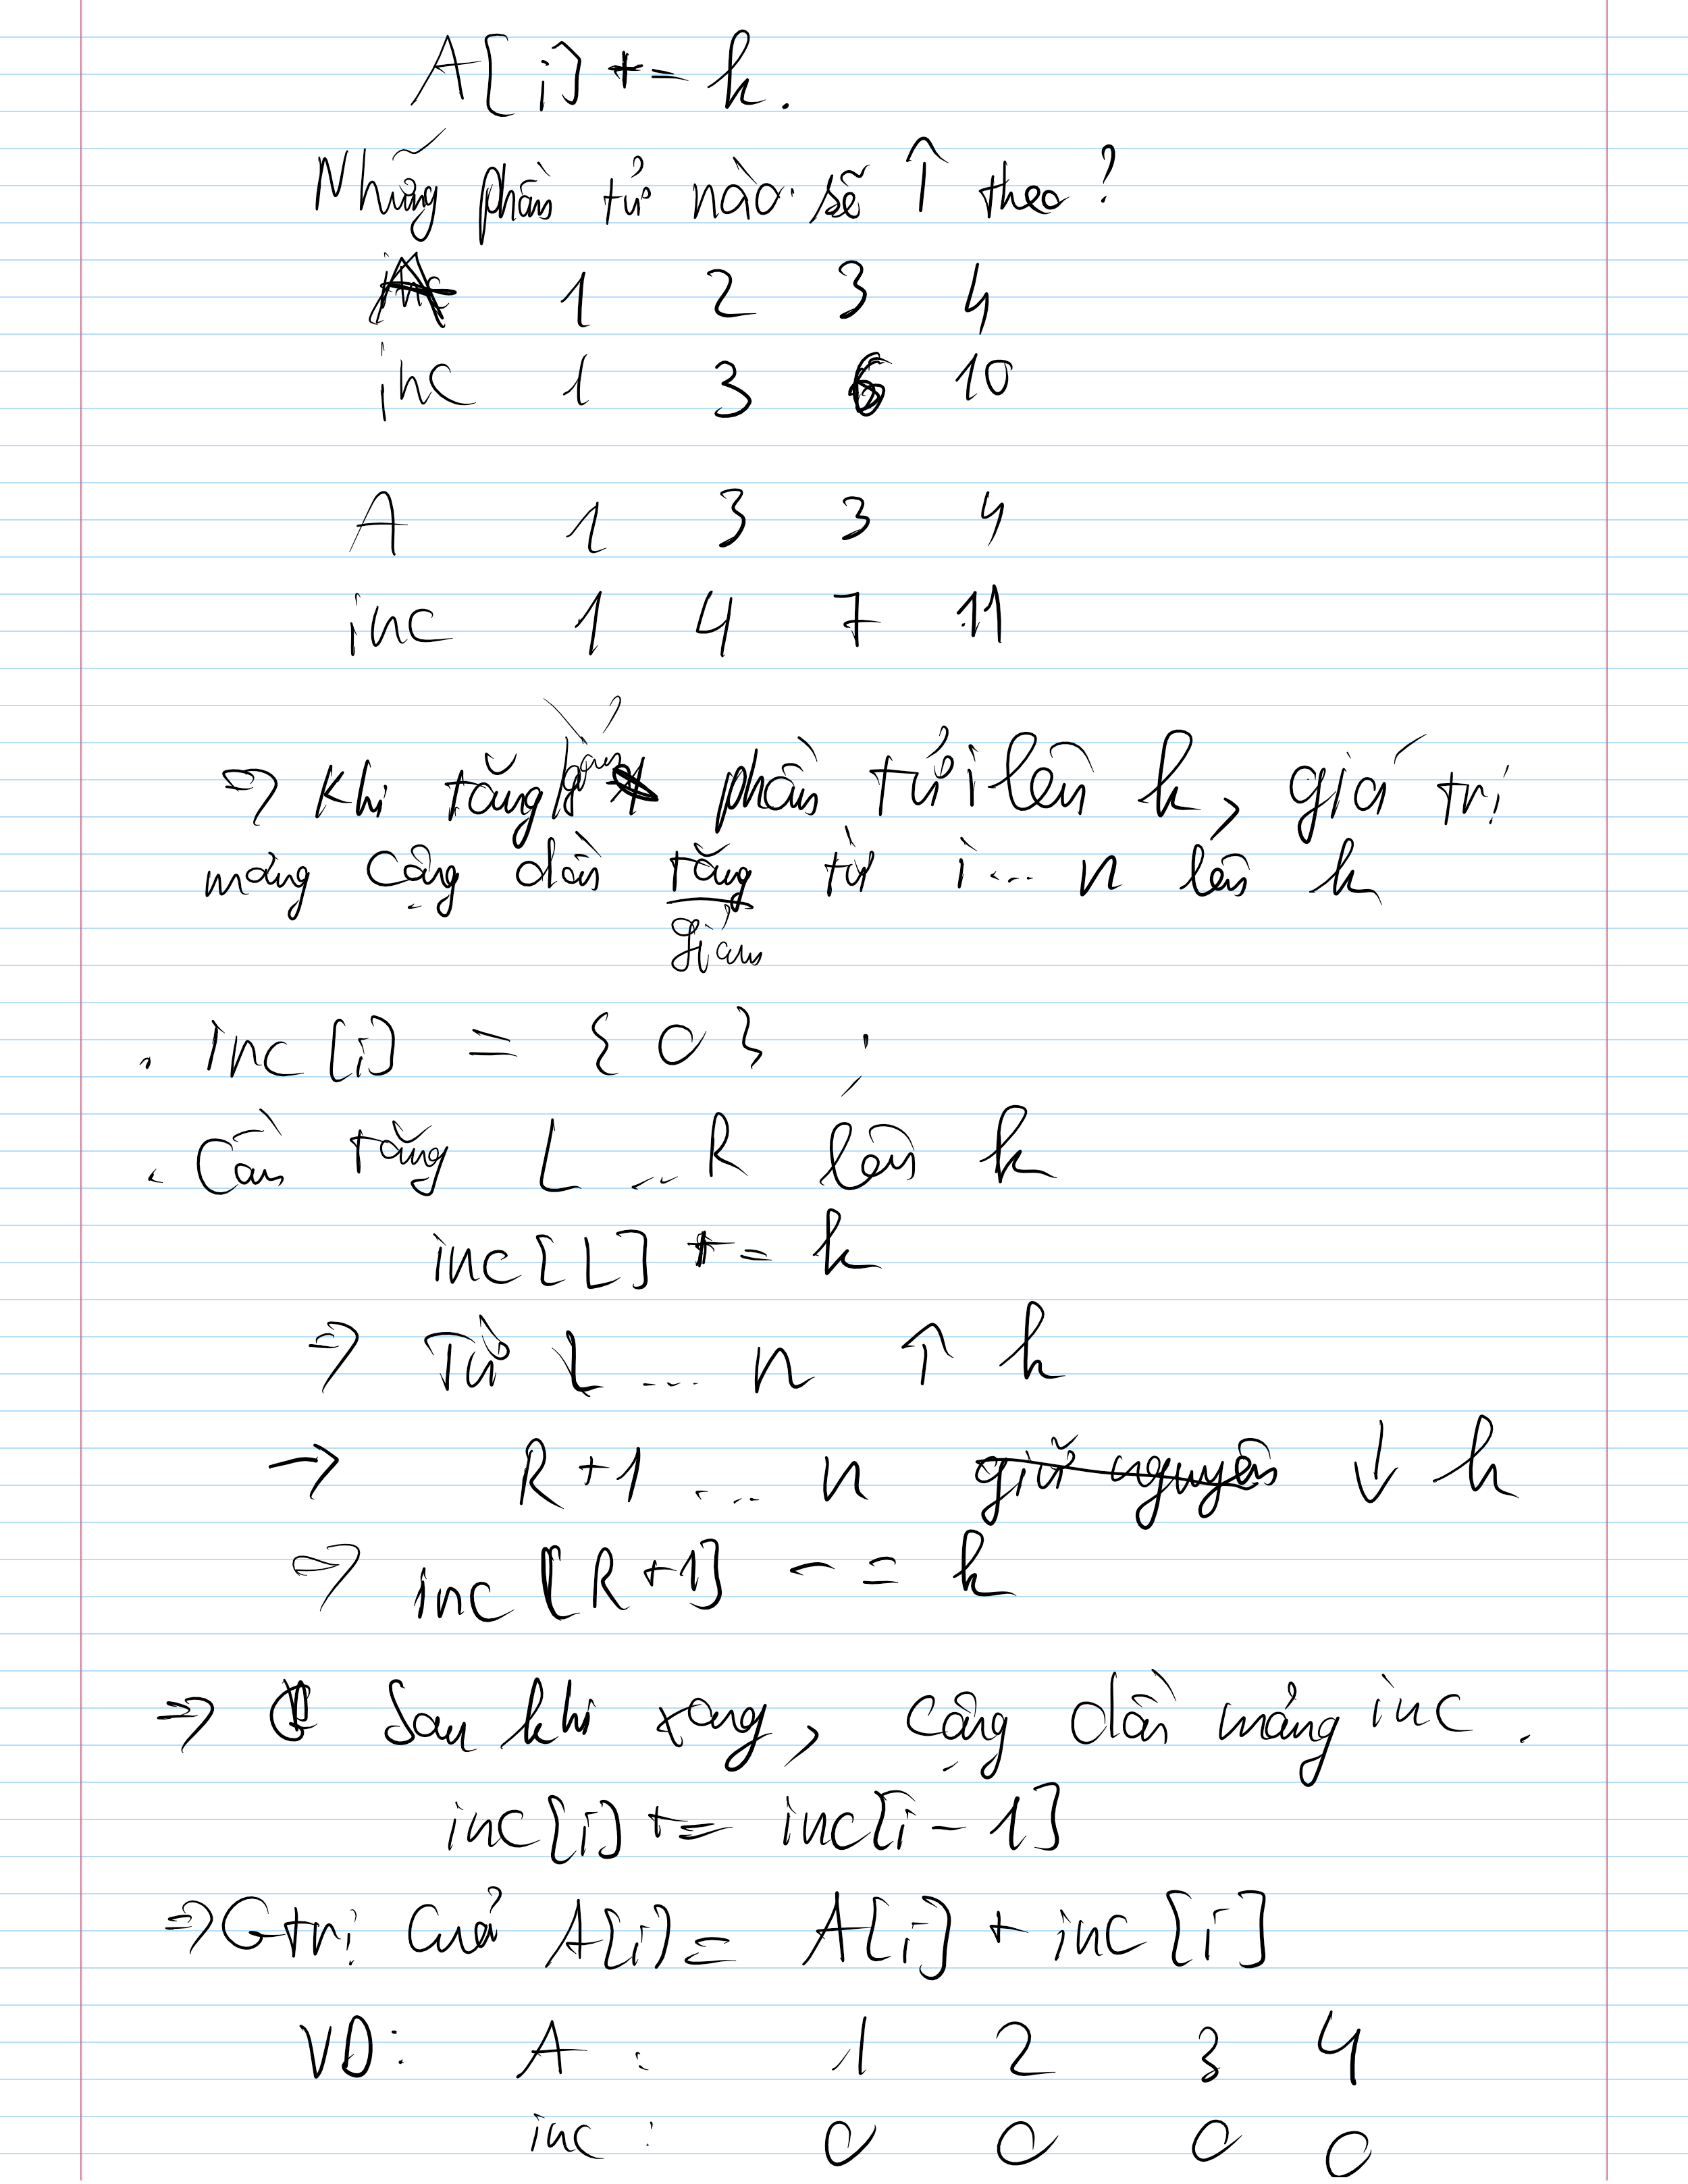 A[i] += k.
Những phần tử nào sẽ ↑ theo?
A 1 2 3 4
inc 1 3 6 10
A 1 3 3 4
inc 1 4 7 11
⇒ Khi tăng/giảm phần tử i lên k, giá trị
mảng cộng dồn tăng từ i ... n lên k
giảm
. inc[i] = {0} ;
. Cần tăng L ... R lên k
inc[L] += k
⇒ Từ L ... n ↑ k
→ R+1 ... n giữ nguyên ↓ k
⇒ inc[R+1] -= k
⇒ Sau khi xong, cộng dồn mảng inc.
inc[i] += inc[i-1]
⇒ Gtrị của A[i] = A[i] + inc[i]
VD: A : 1 2 3 4
inc : 0 0 0 0